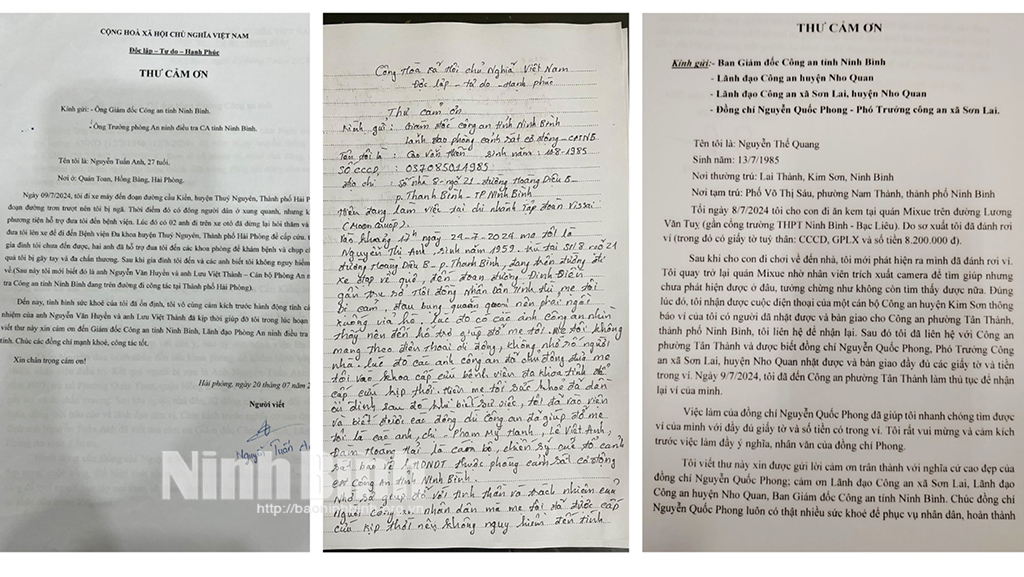 CỘNG HOÀ XÃ HỘI CHỦ NGHĨA VIỆT NAM
Độc lập – Tự do – Hạnh Phúc
THƯ CẢM ƠN
Kính gửi: - Ông Giám đốc Công an tỉnh Ninh Bình.
- Ông Trưởng phòng An ninh điều tra CA tỉnh Ninh Bình.
Tên tôi là: Nguyễn Tuấn Anh, 27 tuổi.
Nơi ở: Quán Toan, Hồng Bàng, Hải Phòng.
Ngày 09/7/2024, tôi đi xe máy đến đoạn đường cầu Kiền, huyện Thuỷ Nguyên, Thành phố Hải P
đoạn đường trơn trượt nên tôi bị ngã. Thời điểm đó có đông người dân ở xung quanh, nhưng k
phương tiện hỗ trợ đưa tôi đến bệnh viện. Lúc đó có 02 anh đi trên xe ôtô đã dừng lại hỏi thăm và
đưa tôi lên xe để đi đến Bệnh viện Đa khoa huyện Thuỷ Nguyên, Thành phố Hải Phòng để cấp cứu.
gia đình tôi chưa đến được, hai anh đã hỗ trợ đưa tôi đến các khoa phòng để khám bệnh và chụp c
quả tôi bị gãy tay và đa chấn thương. Sau khi gia đình tôi đến và các anh biết tôi không nguy hiểm
về (Sau này tôi mới biết đó là anh Nguyễn Văn Huyền và anh Lưu Việt Thành – Cán bộ Phòng An n
tra Công an tỉnh Ninh Bình đang trên đường đi công tác tại Thành phố Hải Phòng).
Đến nay, tình hình sức khoẻ của tôi đã ổn định, tôi vô cùng cảm kích trước hành động tình c
nhiệm của anh Nguyễn Văn Huyền và anh Lưu Việt Thành đã kịp thời giúp đỡ tôi trong lúc hoạn
viết thư này xin cảm ơn đến Giám đốc Công an tỉnh Ninh Bình, Lãnh đạo Phòng An ninh điều tra
tỉnh. Chúc các đồng chí mạnh khoẻ, công tác tốt.
Xin chân trọng cảm ơn!
Hải phòng, ngày 20 tháng 07 năm 2
Người viết
Nguyễn Tuấn
Cộng Hòa Xã Hội chủ Nghĩa Việt Nam
Độc lập - tự do - Hạnh phúc
Thư cảm ơn
Kính gửi: Giám đốc công an tỉnh Ninh Bình
Lãnh đạo phòng cảnh sát cơ động - CATNB.
Tên tôi là: Cao Văn Thiên sinh năm: 10-8-1985
SỐ CCCD: 037085014985
Địa chỉ: Số nhà 8 - ngõ 21 - đường Hoàng Diệu B -
p. Thanh Bình - TP Ninh Bình
Hiện đang làm việc tại chi nhánh Tập đoàn Vissai
17h ngày 24-7-2024 mẹ tôi là
Nguyễn Thị Ánh, sinh năm 1959. trú tại SN.8 ngõ 21
đường Hoàng Diệu B - p. Thanh Bình, đang trên đường đi
xe đạp về quê, đến đoạn đường Đinh Điền
gần trụ sở Hội đồng Nhân Dân tỉnh thì mẹ tôi
bị cảm, đau bụng quằn quại nên phải ngồi
xuống vỉa hè. lúc đó có các anh công an nhìn
thấy nên đến hỗ trợ giúp đỡ mẹ tôi. Mẹ tôi không
mang theo điện thoại di động, không nhớ số người
nhà. lúc đó các anh công an đã chủ động đưa mẹ
tôi vào khoa cấp cứu bệnh viện đa khoa tỉnh để
cấp cứu kịp thời. Hiện mẹ tôi sức khoẻ đã dần
ổn định, sau đó khi biết sự việc, tôi đã vào viện
và biết được các đồng chí Công an đã giúp đỡ mẹ
tôi là các anh, chị - Phạm Mỹ Hạnh, Lê Việt Anh,
Đàm Hoàng Hải là cán bộ, chiến sỹ của tổ cảnh
sát bảo vệ HĐNDT thuộc phòng cảnh sát cơ động
Công an tỉnh Ninh Bình.
Nhờ sự giúp đỡ với tinh thần và trách nhiệm của
người Công an nhân dân mà mẹ tôi đã được cấp
cứu kịp thời nên không nguy hiểm đến tính
THƯ CẢM ƠN
Kính gửi: - Ban Giám đốc Công an tỉnh Ninh Bình
- Lãnh đạo Công an huyện Nho Quan
- Lãnh đạo Công an xã Sơn Lai, huyện Nho Quan
- Đồng chí Nguyễn Quốc Phong - Phó Trưởng công an xã Sơn Lai.
Tên tôi là: Nguyễn Thế Quang
Sinh năm: 13/7/1985
Nơi thường trú: Lai Thành, Kim Sơn, Ninh Bình
Nơi tạm trú: Phố Võ Thị Sáu, phường Nam Thành, thành phố Ninh Bình
Tối ngày 8/7/2024 tôi cho con đi ăn kem tại quán Mixue trên đường Lương
Văn Tuỵ (gần cổng trường THPT Ninh Bình - Bạc Liêu). Do sơ xuất tôi đã đánh rơi
ví (trong đó có giấy tờ tuỳ thân: CCCD, GPLX và số tiền 8.200.000 đ).
Sau khi cho con đi chơi về đến nhà, tôi mới phát hiện ra mình đã đánh rơi ví.
Tôi quay trở lại quán Mixue nhờ nhân viên trích xuất camera để tìm giúp nhưng
chưa phát hiện được ở đâu, tưởng chừng như không còn tìm thấy được nữa. Đúng
lúc đó, tôi nhận được cuộc điện thoại của một cán bộ Công an huyện Kim Sơn thông
báo ví của tôi có người đã nhặt được và bàn giao cho Công an phường Tân Thành,
thành phố Ninh Bình, tôi liên hệ để nhận lại. Sau đó tôi đã liên hệ với Công an
phường Tân Thành và được biết đồng chí Nguyễn Quốc Phong, Phó Trưởng Công
an xã Sơn Lai, huyện Nho Quan nhặt được và bàn giao đầy đủ các giấy tờ và tiền
trong ví. Ngày 9/7/2024, tôi đã đến Công an phường Tân Thành làm thủ tục để nhận
lại ví của mình.
Việc làm của đồng chí Nguyễn Quốc Phong đã giúp tôi nhanh chóng tìm được
ví của mình với đầy đủ giấy tờ và số tiền có trong ví. Tôi rất vui mừng và cảm kích
trước việc làm đầy ý nghĩa, nhân văn của đồng chí Phong.
Tôi viết thư này xin được gửi lời cảm ơn trân thành với nghĩa cử cao đẹp của
đồng chí Nguyễn Quốc Phong; cảm ơn Lãnh đạo Công an xã Sơn Lai, Lãnh đạo
Công an huyện Nho Quan, Ban Giám đốc Công an tỉnh Ninh Bình. Chúc đồng chí
Nguyễn Quốc Phong luôn có thật nhiều sức khoẻ để phục vụ nhân dân, hoàn thành
Ninh Bình
http://baoninhbinh.org.vn